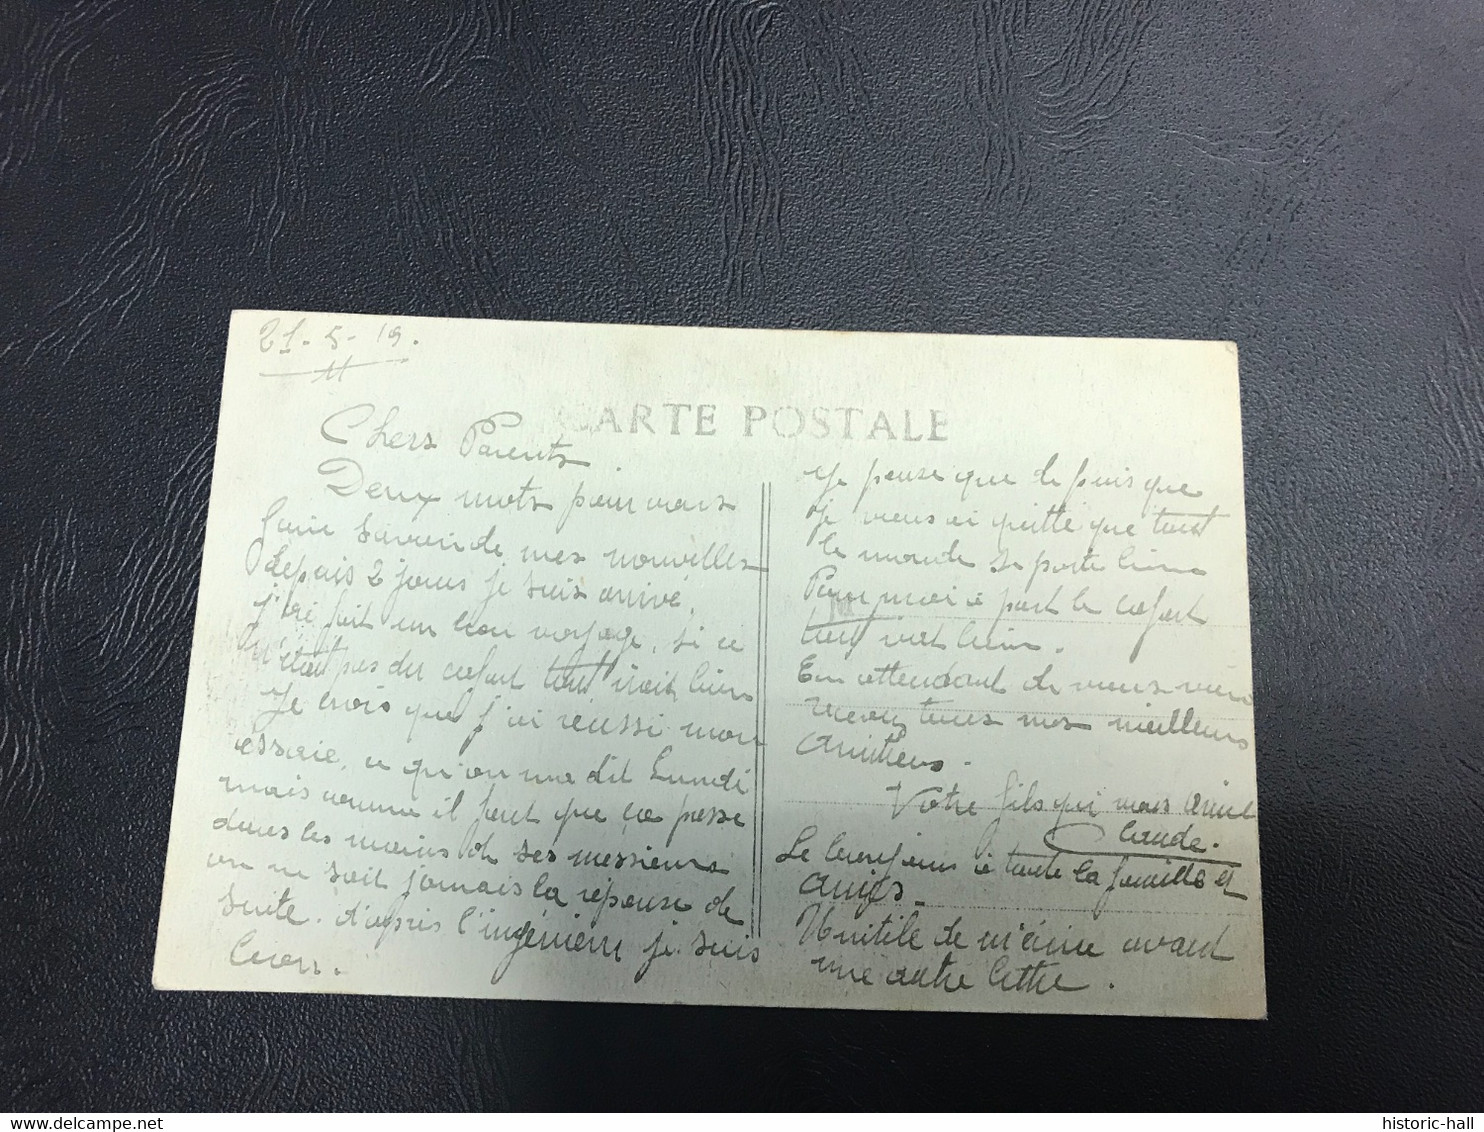 21-5-19.
11
CARTE POSTALE
Chers Parents.
Deux mots pour vous
faire savoir de mes nouvelles
depuis 2 jours je suis arrivé,
j'ai fait un bon voyage, si ce
n'était pas du cafart tout irait bien
Je crois que j'ai réussi mon
essaie, a qu'on me dit Lundi
mais comme il faut que ça passe
dans les mains de ses messieurs
on ne sait jamais la réponse de
suite. d'après l'ingénieur je suis
bon.
Je pense que depuis que
je vous ai quitté que tout
le monde se porte bien
Pour moi a part le cafart
tout vat bien.
En attendant de vous voir
recevez tous mes meilleurs
amitiers.
Votre fils qui vous aime
Claude.
Le bonjour à toute la famille et
amis.
Unitile de m'écrire avant
une autre lettre.
historic-hall